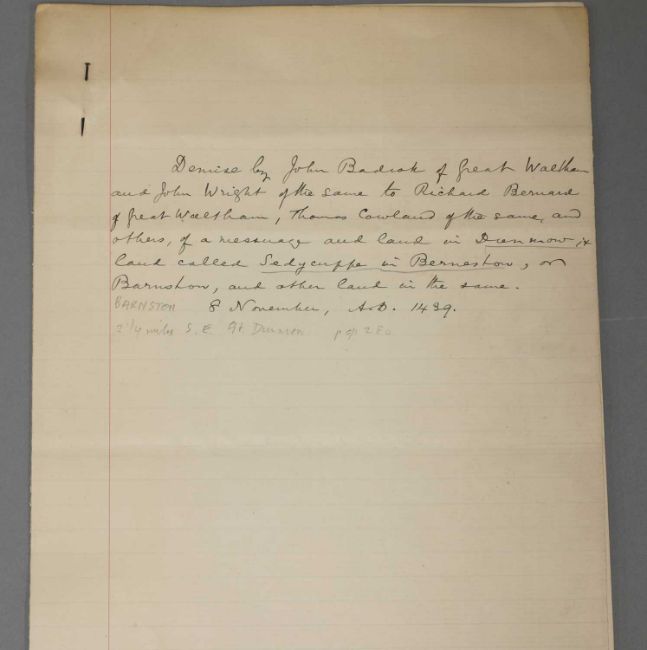 Demise by John Badcok of Great Waltham
and John Wright of the same to Richard Bernard
of Great Waltham, Thomas Cowland of the same, and
others, of a messuage and land in Dunmow, &
land called Sedycuppe in Berneston, or
Barnston, and other land in the same.
BARNSTON 8 November, A.D. 1439.
2 1/4 miles S. E. Gt Dunmow pop 280